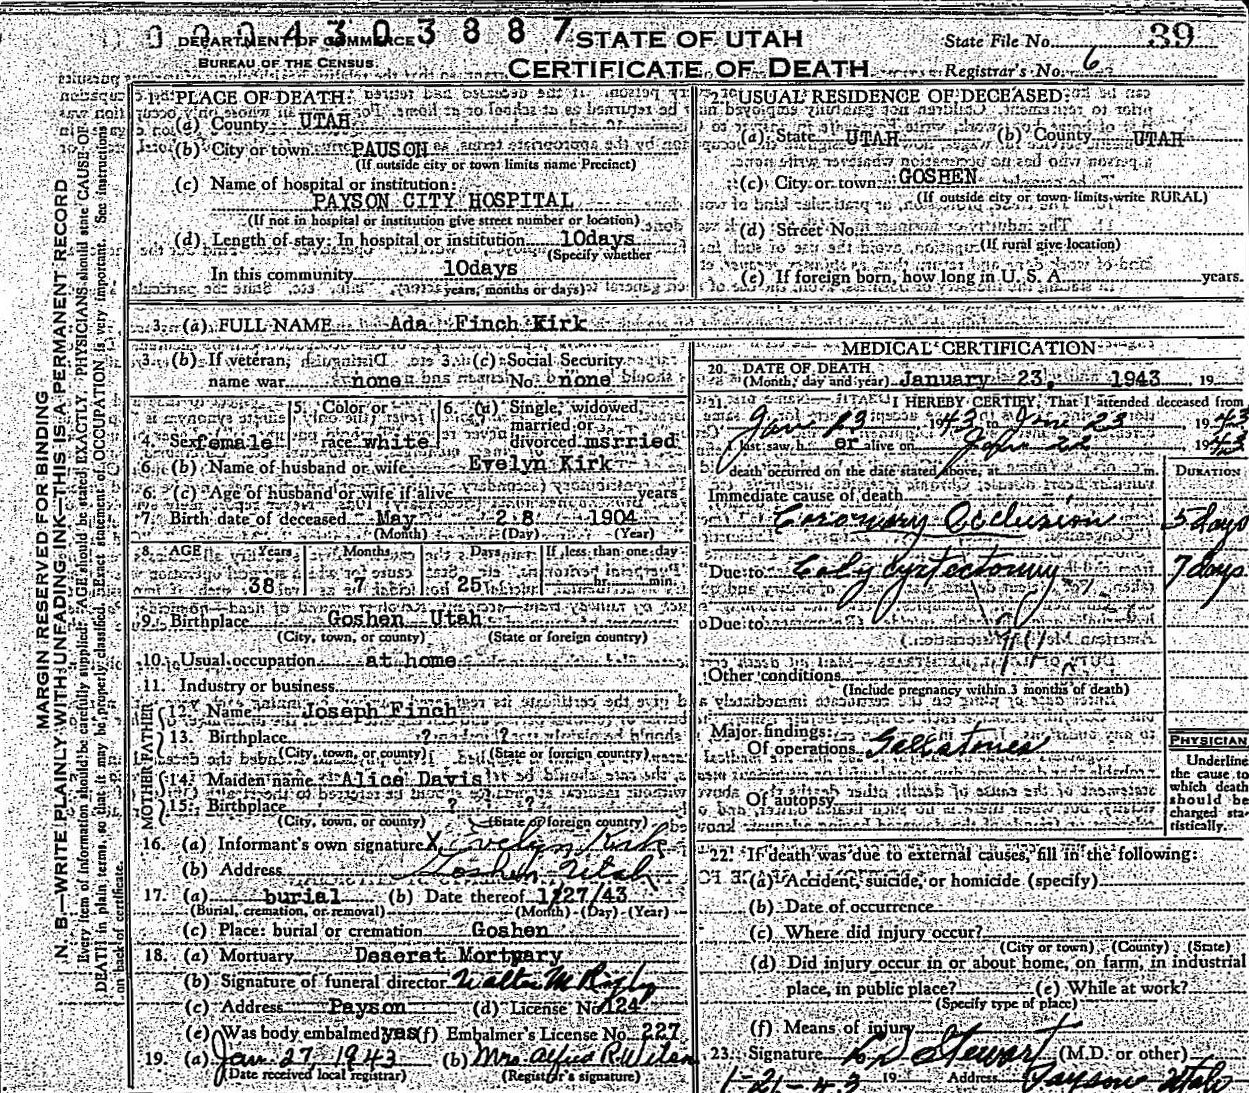 0004303887
DEPARTMENT OF COMMERCE
BUREAU OF THE CENSUS
STATE OF UTAH
CERTIFICATE OF DEATH
State File No. 39
Registrar's No. 6
MARGIN RESERVED FOR BINDING
N. B.—WRITE PLAINLY WITH UNFADING INK—THIS IS A PERMANENT RECORD
Every item of information should be carefully supplied. AGE should be stated EXACTLY. PHYSICIANS should state CAUSE OF
DEATH in plain terms, so that it may be properly classified. Exact statement of OCCUPATION is very important. See instructions
on back of certificate.
1. PLACE OF DEATH:
(a) County UTAH
(b) City or town PAUSON
(If outside city or town limits name Precinct)
(c) Name of hospital or institution:
PAYSON CITY HOSPITAL
(If not in hospital or institution give street number or location)
(d) Length of stay: In hospital or institution 10days
(Specify whether
In this community 10days
years, months or days)
2. USUAL RESIDENCE OF DECEASED:
(a) State UTAH (b) County UTAH
(c) City or town GOSHEN
(If outside city or town limits write RURAL)
(d) Street No.
(If rural give location)
(e) If foreign born, how long in U. S. A. years.
3. (a) FULL NAME Ada Finch Kirk
3. (b) If veteran, 3. (c) Social Security
name war none No. none
4. Sex female 5. Color or race white 6. (a) Single, widowed, married or divorced msrried
6. (b) Name of husband or wife Evelyn Kirk
6. (c) Age of husband or wife if alive years
7. Birth date of deceased May 28 1904
(Month) (Day) (Year)
8. AGE Years Months Days If less than one day
38 7 25 hr. min.
9. Birthplace Goshen Utah
(City, town, or county) (State or foreign country)
10. Usual occupation at home
11. Industry or business
FATHER
12. Name Joseph Finch
13. Birthplace ? ?
(City, town, or county) (State or foreign country)
MOTHER
14. Maiden name Alice Davis
15. Birthplace ? ?
(City, town, or county) (State or foreign country)
16. (a) Informant's own signature X Evelyn Kirk
(b) Address Goshen Utah
17. (a) burial (b) Date thereof 1/27/43
(Burial, cremation, or removal) (Month) (Day) (Year)
(c) Place: burial or cremation Goshen
18. (a) Mortuary Deserat Mortuary
(b) Signature of funeral director Walter M Rigby
(c) Address Payson (d) License No. 124
(e) Was body embalmed yes (f) Embalmer's License No. 227
19. (a) Jan 27 1943 (b) Mrs. Alfred R. Wilson
(Date received local registrar) (Registrar's signature)
MEDICAL CERTIFICATION
20. DATE OF DEATH
(Month, day and year) January 23, 1943, 19
21. I HEREBY CERTIFY, That I attended deceased from
Jan 23, 1943, to Jan 23, 1943
I last saw her alive on Jan 22 1943
death occurred on the date stated above, at m. DURATION
Immediate cause of death
Coronary Occlusion 5 days
Due to 7 days
Due to
Other conditions
(Include pregnancy within 3 months of death)
Major findings:
Of operations Gallstones
Of autopsy
PHYSICIAN
Underline
the cause to
which death
should be
charged sta-
tistically.
22. If death was due to external causes, fill in the following:
(a) Accident, suicide, or homicide (specify)
(b) Date of occurrence
(c) Where did injury occur?
(City or town) (County) (State)
(d) Did injury occur in or about home, on farm, in industrial
place, in public place? (e) While at work?
(Specify type of place)
(f) Means of injury
23. Signature L D Stewart (M.D. or other)
1-21-43 19 Address Payson Utah